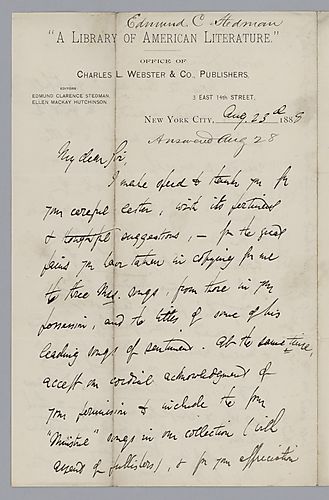 Edmund C. Stedman
"A Library of American Literature."
OFFICE OF
CHARLES L. WEBSTER & CO., PUBLISHERS,
EDITORS
EDMUND CLARENCE STEDMAN,
ELLEN MACKAY HUTCHINSON
3 EAST 14TH STREET,
NEW YORK CITY, Aug. 23d 1888
Answered Aug 28
My dear Sir,
I make speed to thank you for
your careful letter, with its pertinent
& thoughtful suggestions, — for the great
pains you have taken in copying for me
the three Mss. songs, from those in your
possession, and the titles of some of his
leading songs of sentiment. At the same time,
accept our cordial acknowledgment of
your permission to include the four
"Minstrel" songs in our collection (with
assent of publishers), & for your appreciation